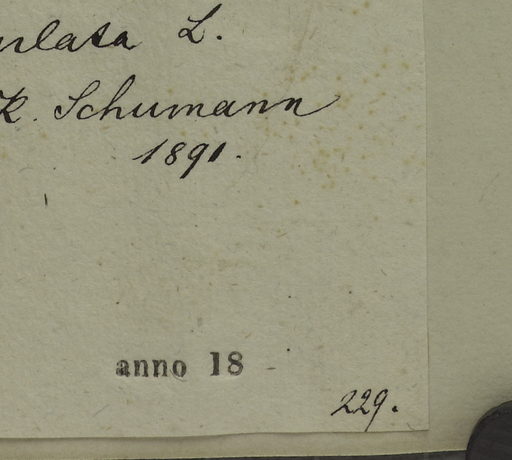 urlata L.
K. Schumann
1891.
anno 18
229.